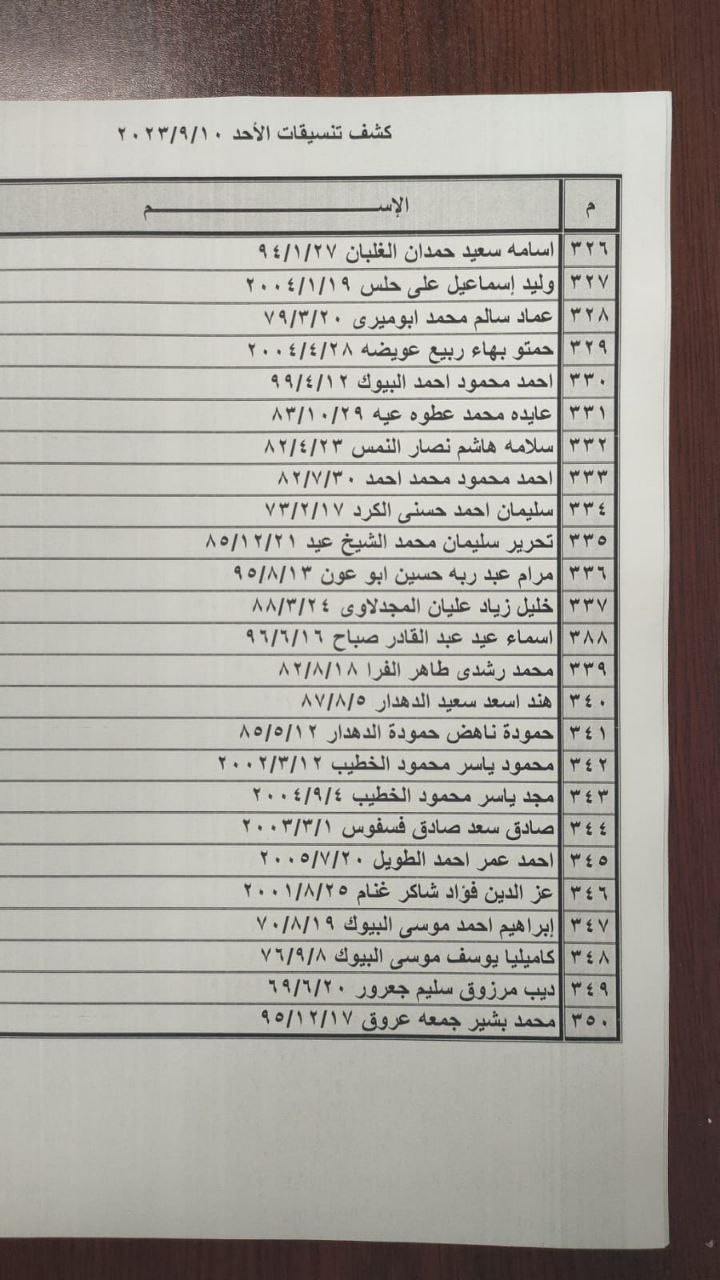 كشف تنسيقات الأحد ٢٠٢٣/٩/١٠
م الإســــــــــــــــــــم
٣٢٦ اسامه سعيد حمدان الغلبان ٩٤/١/٢٧
٣٢٧ وليد إسماعيل على حلس ٢٠٠٤/١/١٩
٣٢٨ عماد سالم محمد ابوميرى ٧٩/٣/٢٠
٣٢٩ حمتو بهاء ربيع عويضه ٢٠٠٤/٤/٢٨
٣٣٠ احمد محمود احمد البيوك ٩٩/٤/١٢
٣٣١ عايده محمد عطوه عيه ٨٣/١٠/٢٩
٣٣٢ سلامه هاشم نصار النمس ٨٢/٤/٢٣
٣٣٣ احمد محمود محمد احمد ٨٢/٧/٣٠
٣٣٤ سليمان احمد حسنى الكرد ٧٣/٢/١٧
٣٣٥ تحرير سليمان محمد الشيخ عيد ٨٥/١٢/٢١
٣٣٦ مرام عبد ربه حسين ابو عون ٩٥/٨/١٣
٣٣٧ خليل زياد عليان المجدلاوى ٨٨/٣/٢٤
٣٨٨ اسماء عيد عبد القادر صباح ٩٦/٦/١٦
٣٣٩ محمد رشدى طاهر الفرا ٨٢/٨/١٨
٣٤٠ هند اسعد سعيد الدهدار ٨٧/٨/٥
٣٤١ حمودة ناهض حمودة الدهدار ٨٥/٥/١٢
٣٤٢ محمود ياسر محمود الخطيب ٢٠٠٢/٣/١٢
٣٤٣ مجد ياسر محمود الخطيب ٢٠٠٤/٩/٤
٣٤٤ صادق سعد صادق فسفوس ٢٠٠٣/٣/١
٣٤٥ احمد عمر احمد الطويل ٢٠٠٥/٧/٢٠
٣٤٦ عز الدين فؤاد شاكر غنام ٢٠٠١/٨/٢٥
٣٤٧ إبراهيم احمد موسى البيوك ٧٠/٨/١٩
٣٤٨ كاميليا يوسف موسى البيوك ٧٦/٩/٨
٣٤٩ ديب مرزوق سليم جعرور ٦٩/٦/٢٠
٣٥٠ محمد بشير جمعه عروق ٩٥/١٢/١٧